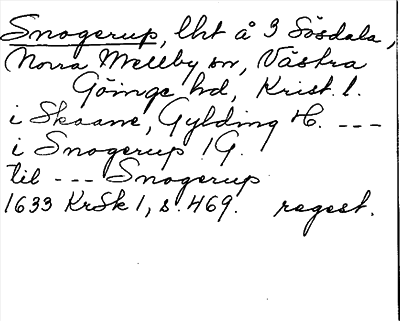 Snogerup, lht å 3 Sösdala,
Norra Mellby sn, Västra
Göinge hd, Krist. l.
i Skaane, Gylding H. ---
i Snogerup 1G.
til --- Snogerup
1633 KrSk 1, s. 469. regest.